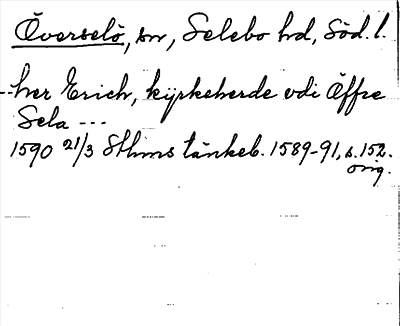 Överselö, sn, Selebo hd, Söd. l.
--her Erich, kyrkeherde vdi Öffre
Sela ---
1590 21/3 Sthlms tänkeb. 1589-91, s. 152.
orig.